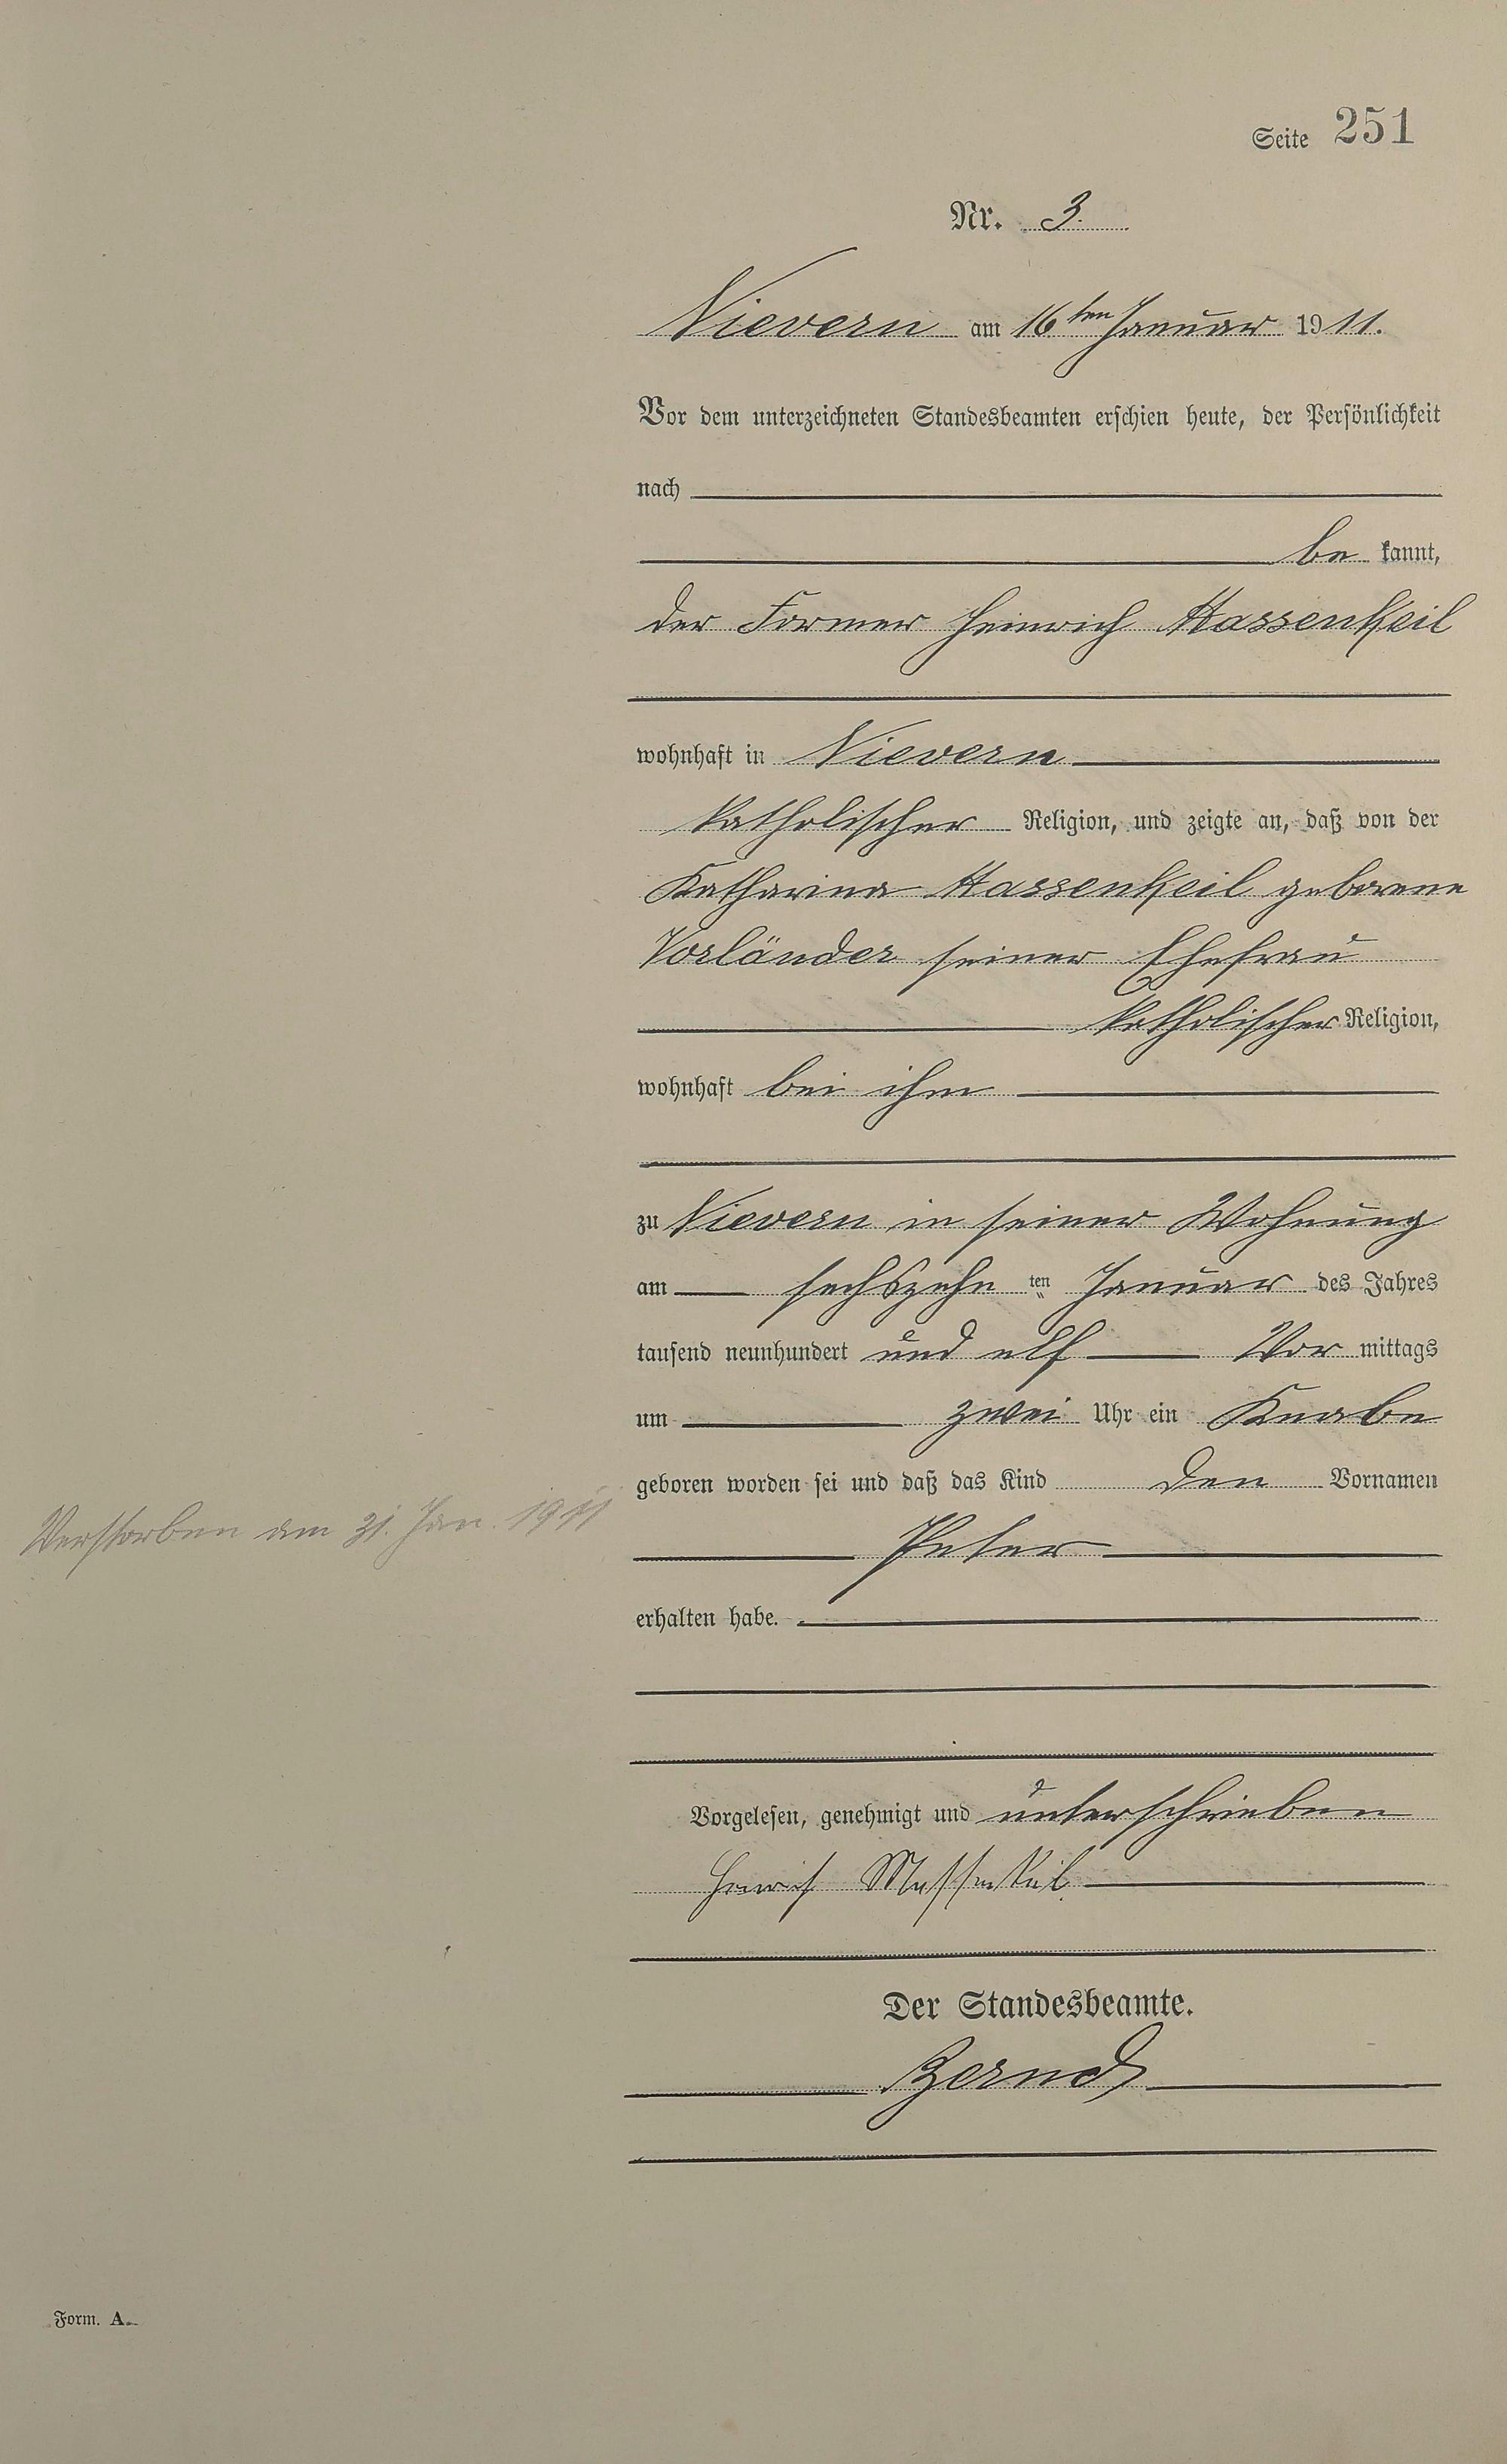 Seite 251
Nr. 3.
Nievern am 16ten Januar 1911.
Vor dem unterzeichneten Standesbeamten erschien heute, der Persönlichkeit
nach
be kannt,
der Former Heinrich Massenkeil
wohnhaft in Nievern
katholischer Religion, und zeigte an, daß von der
Katharina Massenkeil geborene
Vorländer seiner Ehefrau
katholischer Religion,
wohnhaft bei ihm
zu Nievern in seiner Wohnung
am sechszehn ten Januar des Jahres
tausend neunhundert und elf Vor mittags
um zwei Uhr ein Knabe
geboren worden sei und daß das Kind den Vornamen
Verstorben am 31. Jan. 1911
Peter
erhalten habe.
Vorgelesen, genehmigt und unterschrieben
Heinrich Massenkeil
Der Standesbeamte.
Form. A.